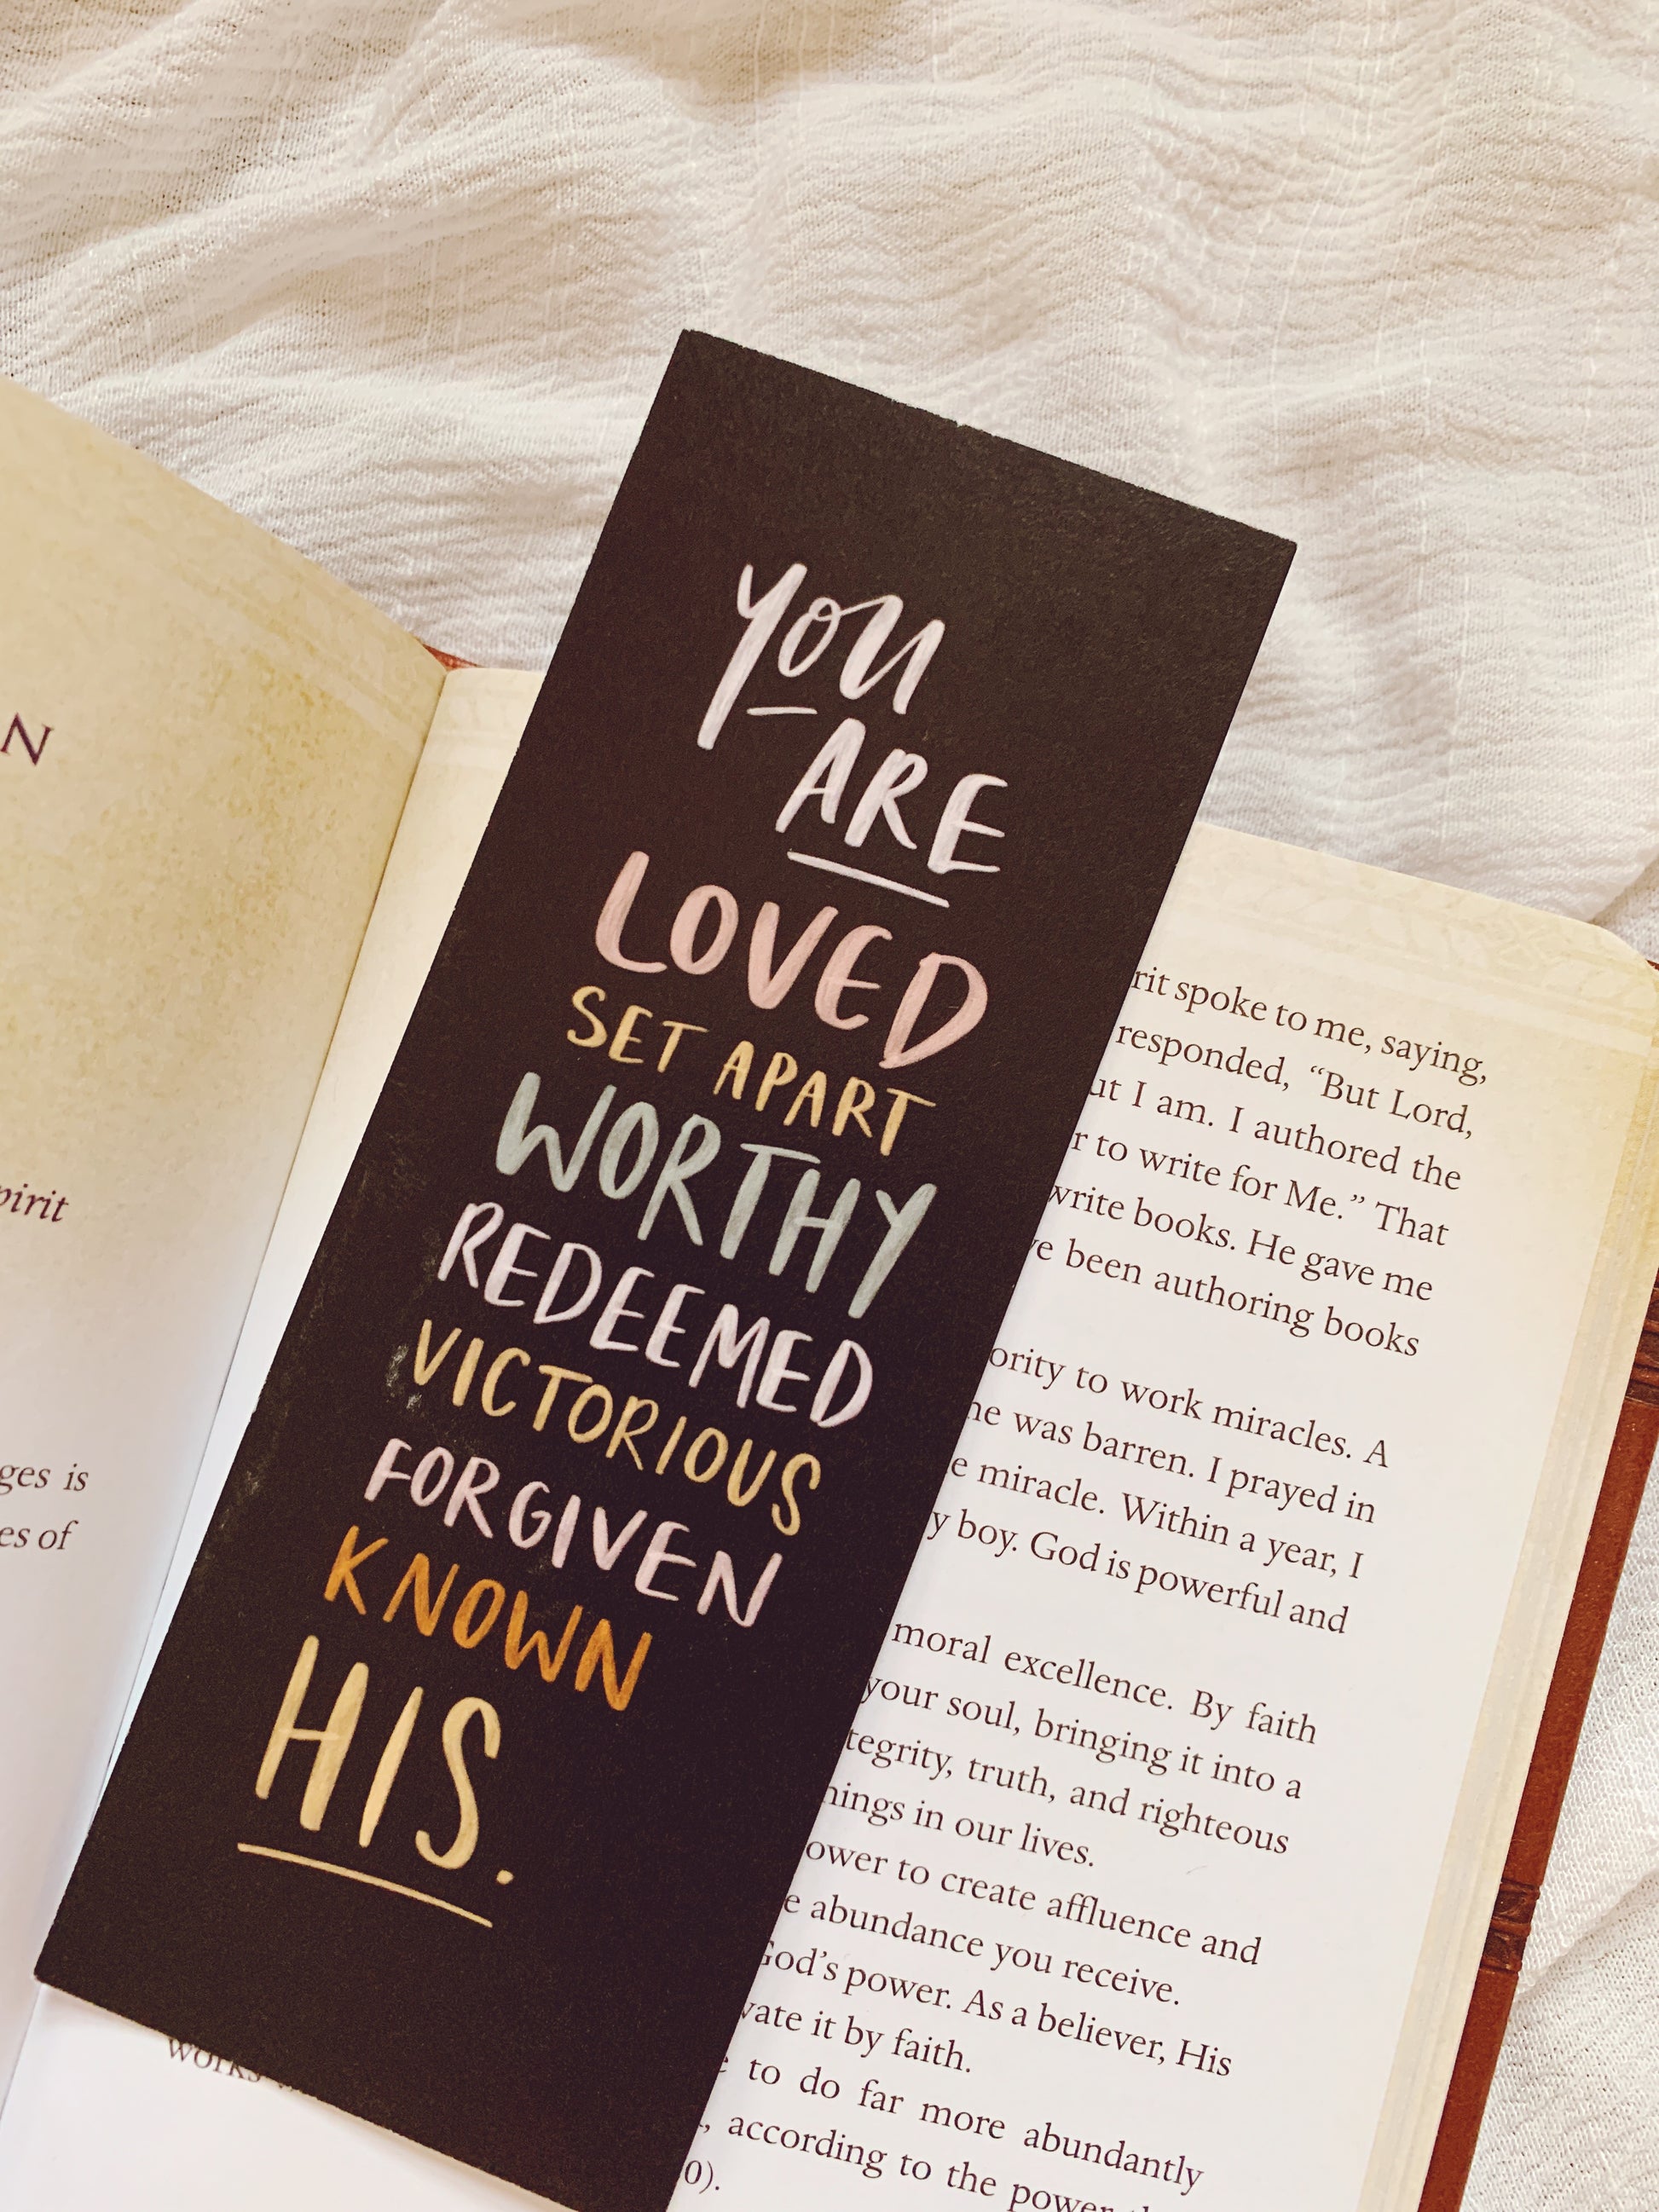 You
ARE
LOVED
SET APART
WORTHY
REDEEMED
VICTORIOUS
FORGIVEN
KNOWN
HIS.
N
ges is
es of
spoke to me, saying,
responded, “But Lord,
I am. I authored the
to write for Me.” That
write books. He gave me
been authoring books
to work miracles. A
was barren. I prayed in
miracle. Within a year, I
boy. God is powerful and
moral excellence. By faith
your soul, bringing it into a
truth, and righteous
in our lives.
to create affluence and
abundance you receive.
God’s power. As a believer, His
it by faith.
to do far more abundantly
according to the power
0).